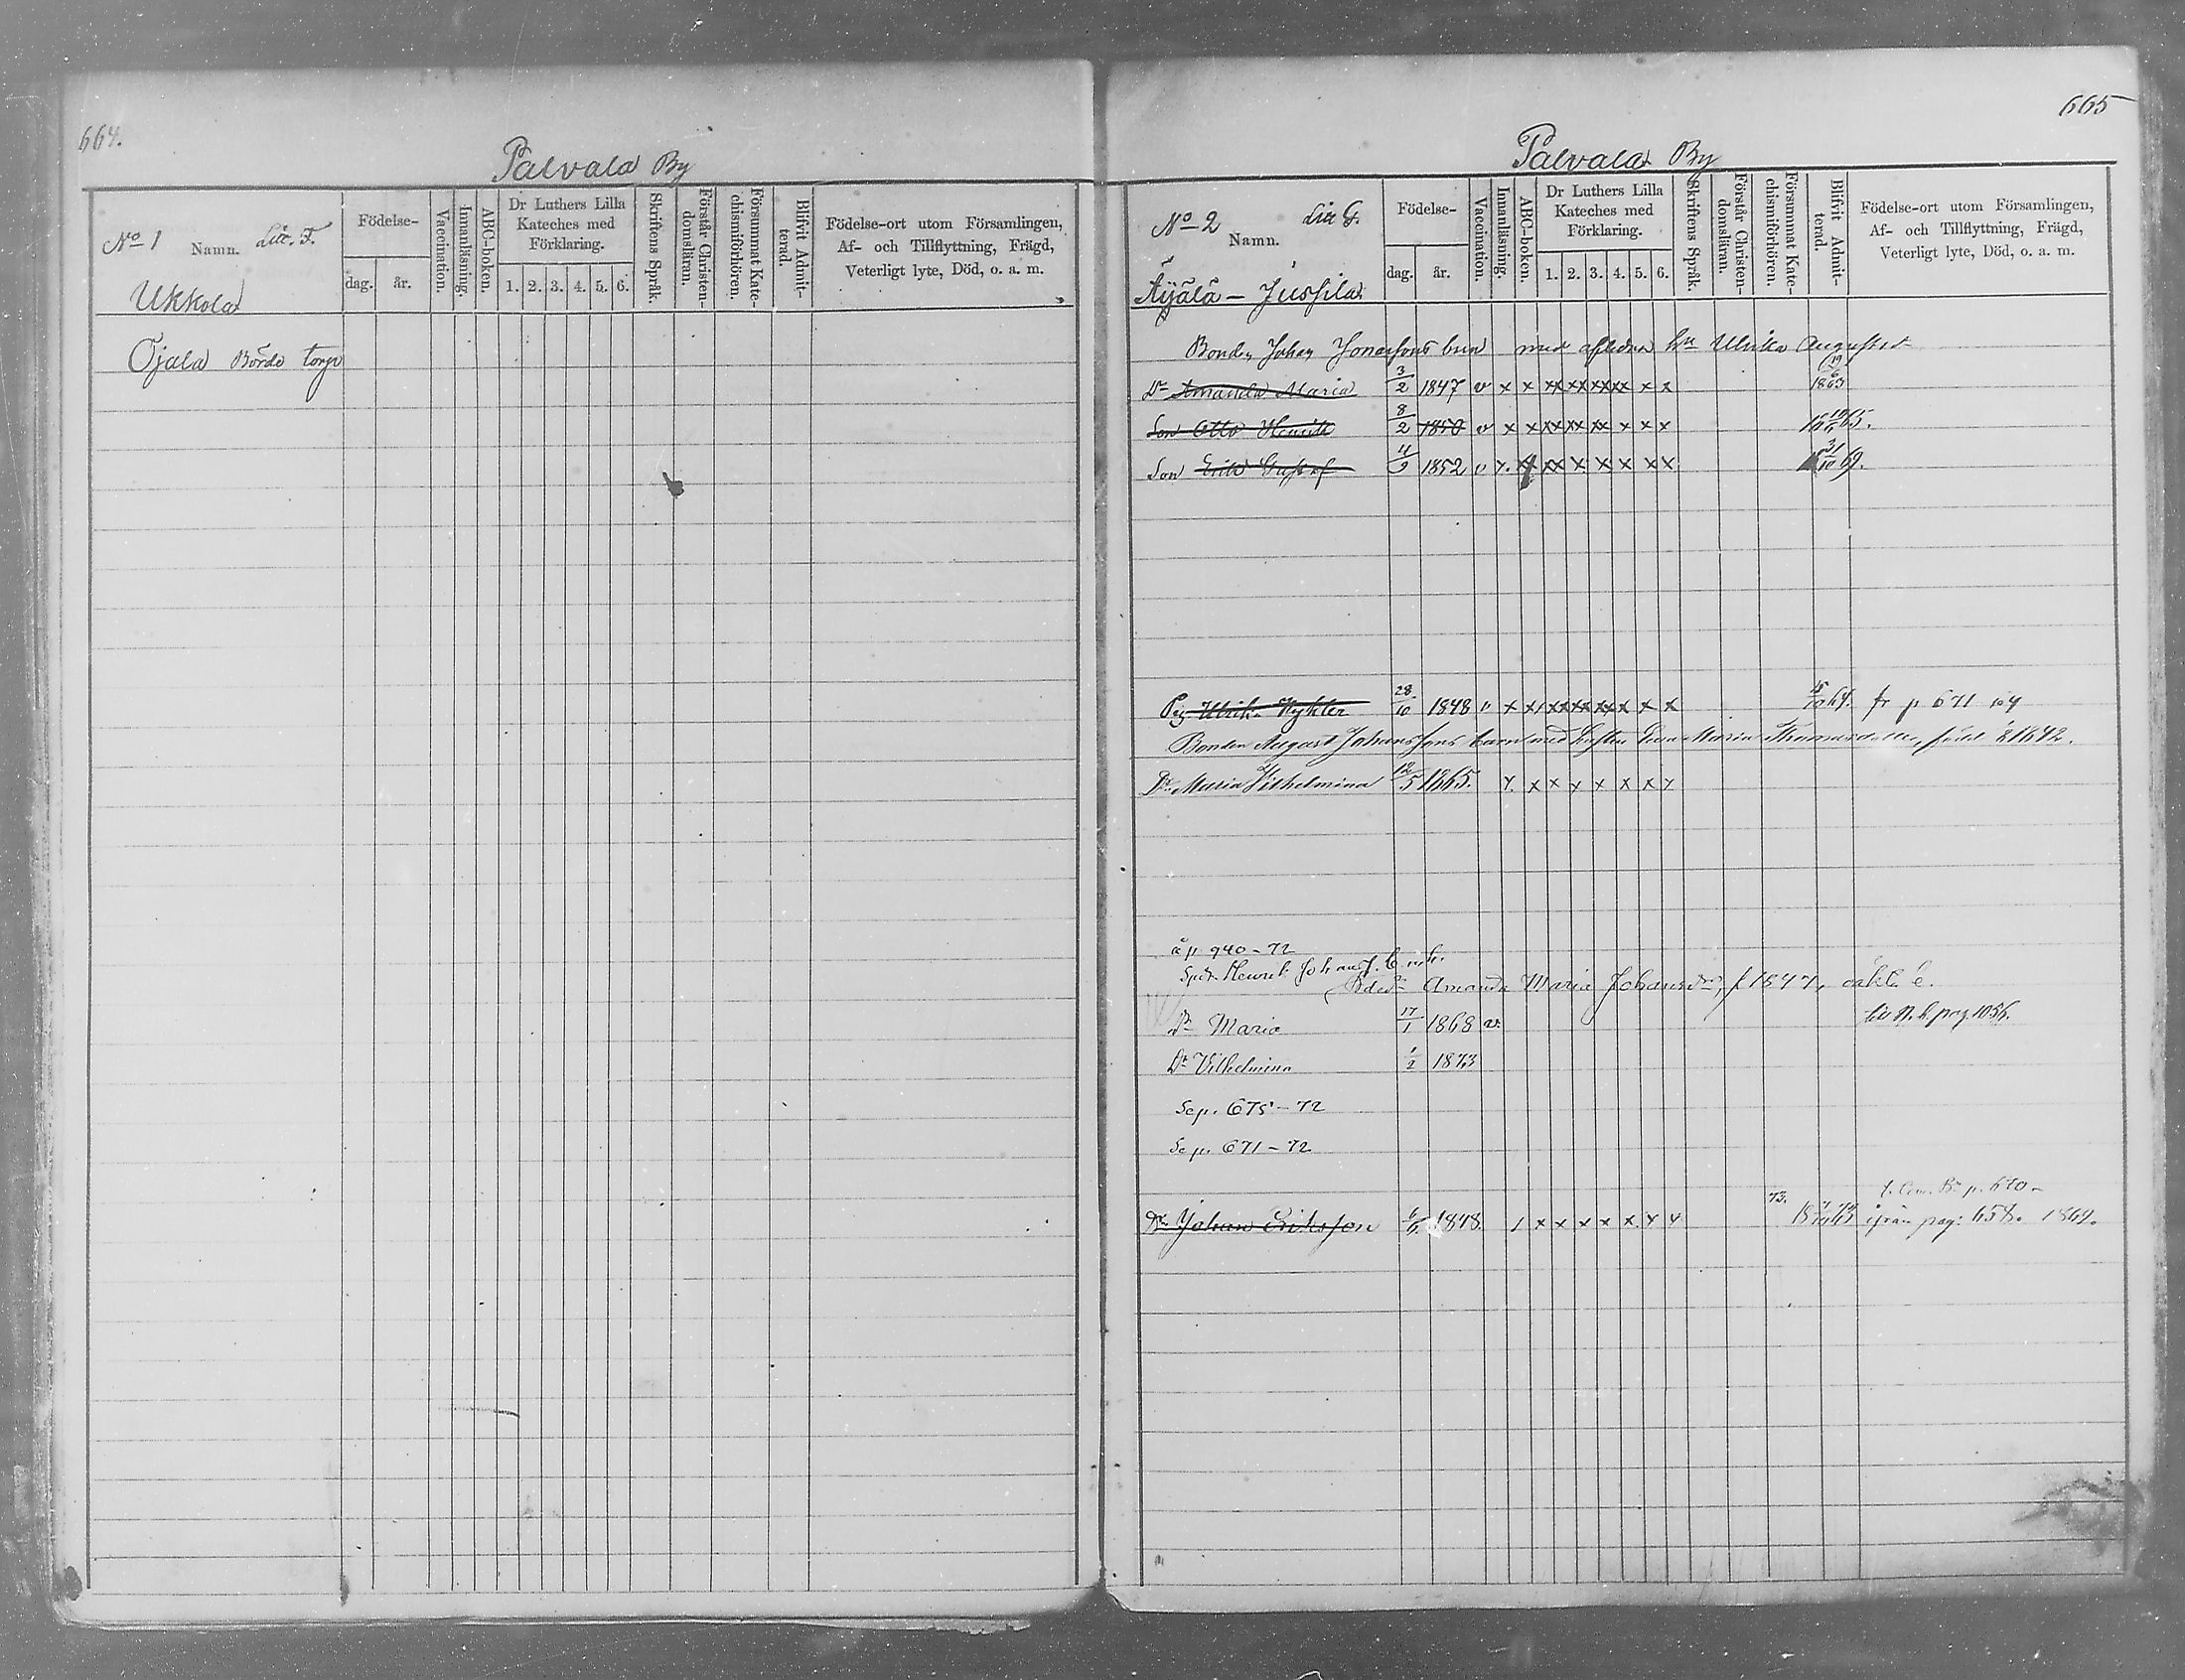 664.
Palvala By
No 1 Namn. Litt. F.
Ukkola
Födelse-
dag. år.
Vaccination.
Innanläsning.
ABC-boken.
Dr Luthers Lilla
Kateches med
Förklaring.
1. 2. 3. 4. 5. 6.
Skriftens Språk.
Förstår Christen-
domsläran.
Försummat Kate-
chismiförhören.
Blifvit Admit-
terad.
Födelse-ort utom Församlingen,
Af- och Tillflyttning, Frägd,
Veterligt lyte, Död, o. a. m.
Ojala Bördo torp
665
Palvala By
No 2 Namn. Litt G.
Äijälä - Jussila
Födelse-
dag. år.
Vaccination.
Innanläsning.
ABC-boken.
Dr Luthers Lilla
Kateches med
Förklaring.
1. 2. 3. 4. 5. 6.
Skriftens Språk.
Förstår Christen-
domsläran.
Försummat Kate-
chismiförhören.
Blifvit Admit-
terad.
Födelse-ort utom Församlingen,
Af- och Tillflyttning, Frägd,
Veterligt lyte, Död, o. a. m.
Bonden Johan barn med aflidna hu Ulrika
Dr Amanda Maria 3/2 1847 v x x xx xx xx xx x x 19/6 1863
Son Otto Henrik 8/2 1850 v x x xx xx xx x x x 65.
Son Erik Gustaf 4/2 1852 v x. xx x x x x x 31/10 69.
Pig Ulrika Nykter 28/10 1848 v x x x xx xx xx x x x 64. fr p 671
Bonden August Johanssons barn med hustru Maria född 1842.
Dr Maria Vilhelmina 12/5 1865. x x x x x x x x
å p 940-72
Henrik Amanda Maria Johansdr, f 1847,
Dr Maria 17/1 1868 v. pag 1056.
Dr Vilhelmina 1/2 1873
Se p. 675-72
Se p. 671-72
p. 670
Johan Eriksson 6/5 1848 / x x x x x x x 73. ifrån pag: 658. 1869.